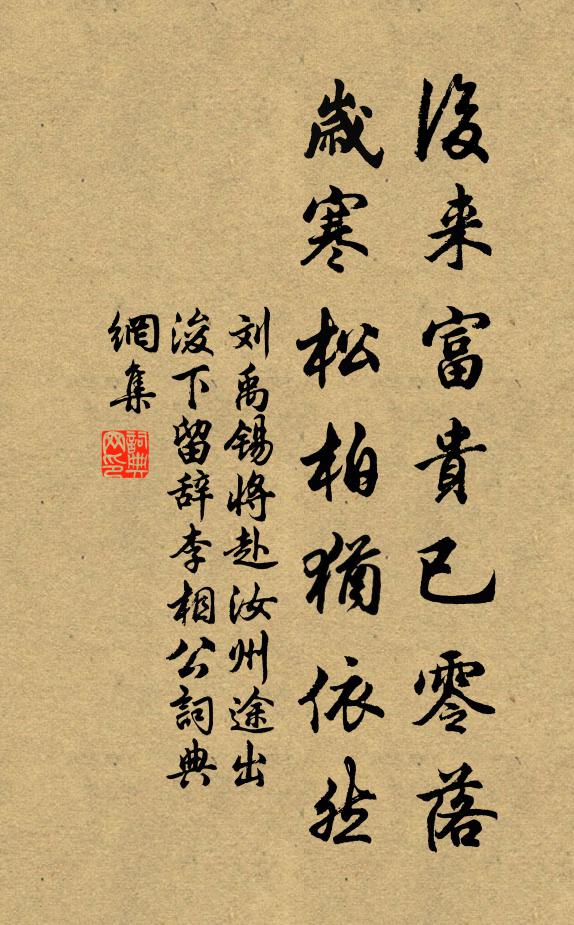 後来富貴已零落
歲寒松柏猶依然
刘禹锡将赴汝州途出
浚下留辞李相公詞典
網集
詞典
网印